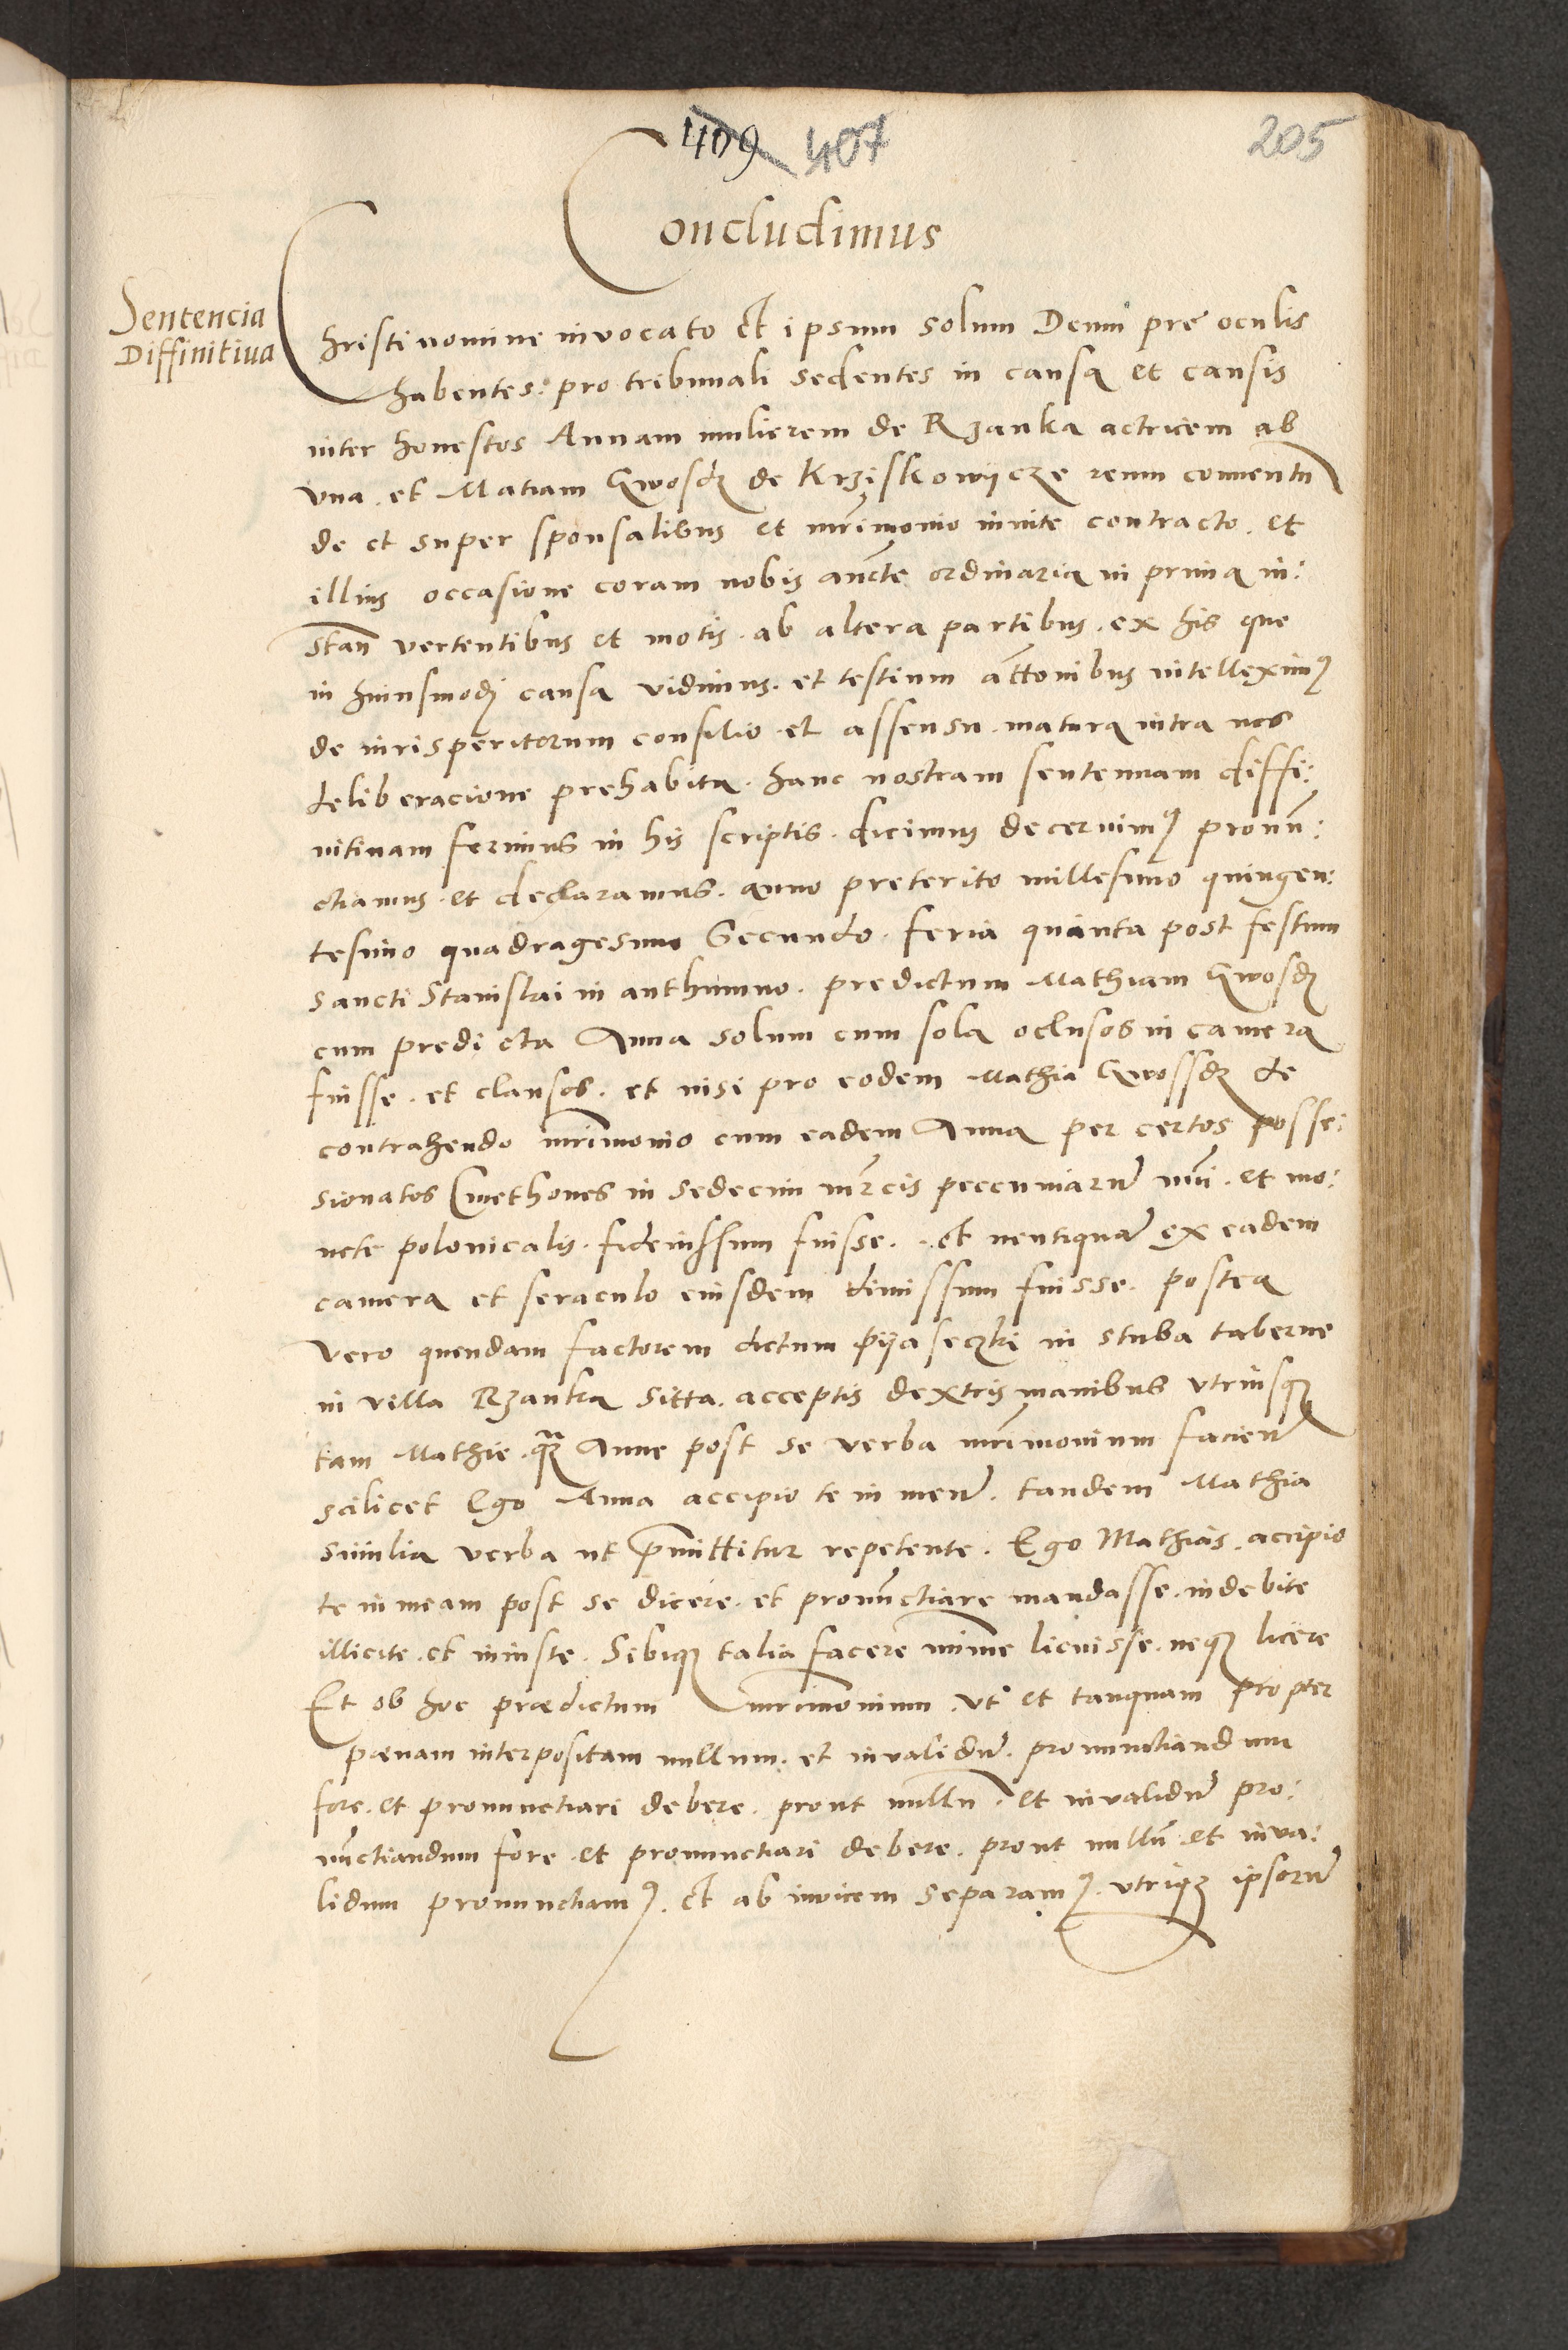 409 407
205
Concludimus
Sentencia
Diffinitiua
Christi nomine invocato Et ipsum solum Deum pre oculis
habentes: pro tribunali sedentes in causa et causis
inter honestos Annam mulierem de Rzanka actricem ab
vna. et Matiam Gwosdz de Krziskowijcze reum conventu
de et super sponsalibus et mrimonio invite contracto. et
illius occasione coram nobis aucte ordinaria in prima in:
stan vertentibus et motis. ab altera partibus. ex his que
in huiusmodi causa vidimus. et testium attonibus intelleximus
de iurisperitorum consilio. et assensu. matura intra nos
deliberacione prehabita. hanc nostram sentenciam diffi:
nitiuam ferimus in his scriptis. dicimus decernimus pronun:
ctiamus. et declaramus. anno preterito millesimo quingen:
tesimo quadragesimo Secundo. feria quinta post festum
sancti Stanislai in anthumno. predictum Mathiam Gwosdz
cum predicta Anna solum cum sola oclusos in camera
fuisse. et clausos. et nisi pro eodem Mathia Gwossdz de
contrahendo mrimonio cum eadem Anna per certos posse:
sionatos Cmethones in sedecim mrcis peccuniarum nuи. et mo:
nete polonicalis. fideiussum fuisse. et neutiquam ex eadem
camera et seraculo eiusdem dimissum fuisse. postea
vero quendam factorem dictum pijaseczki in stuba taberne
in villa Rzanka sitta. acceptis dextris manibus vtriusque
tam Mathie. quam Anne post se verba mrimonium facien
scilicet Ego Anna accipio te in meum. tandem Mathia
similia verba ut premittitur repetente. Ego Mathias. accipio
te in meam post se dicere. et pronunctiare mandasse. indebite
illicite. et iniuste. Sibique talia facere minime licuisse. neque licere
Et ob hoc prædictum mrimonium. vt et tanquam propter
pœnam interpositam nullum. et invalidum. pronunctiandum
fore. et pronunctiari debere. prout nullum. et invalidum pro:
nunctiandum fore. et pronunctiari debere. prout nullum et inva:
lidum pronunctiamus. Et ab invicem separamus. vtrique ipsorum